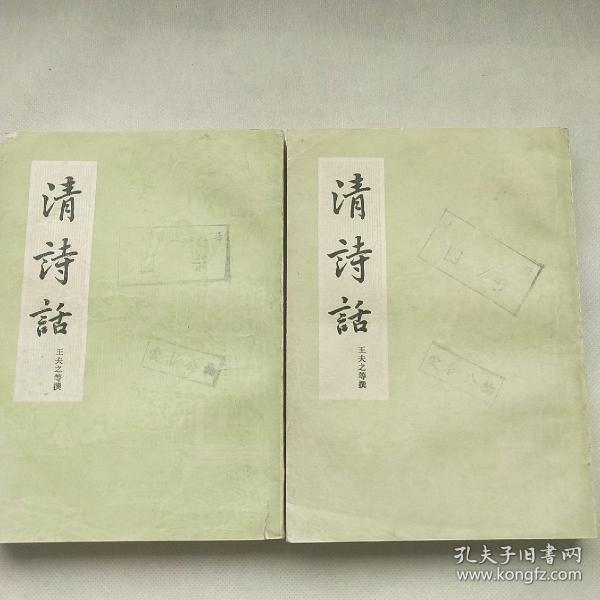 清詩話
王夫之等撰
清詩話
王夫之等撰
孔夫子旧书网
www.kongfz.com